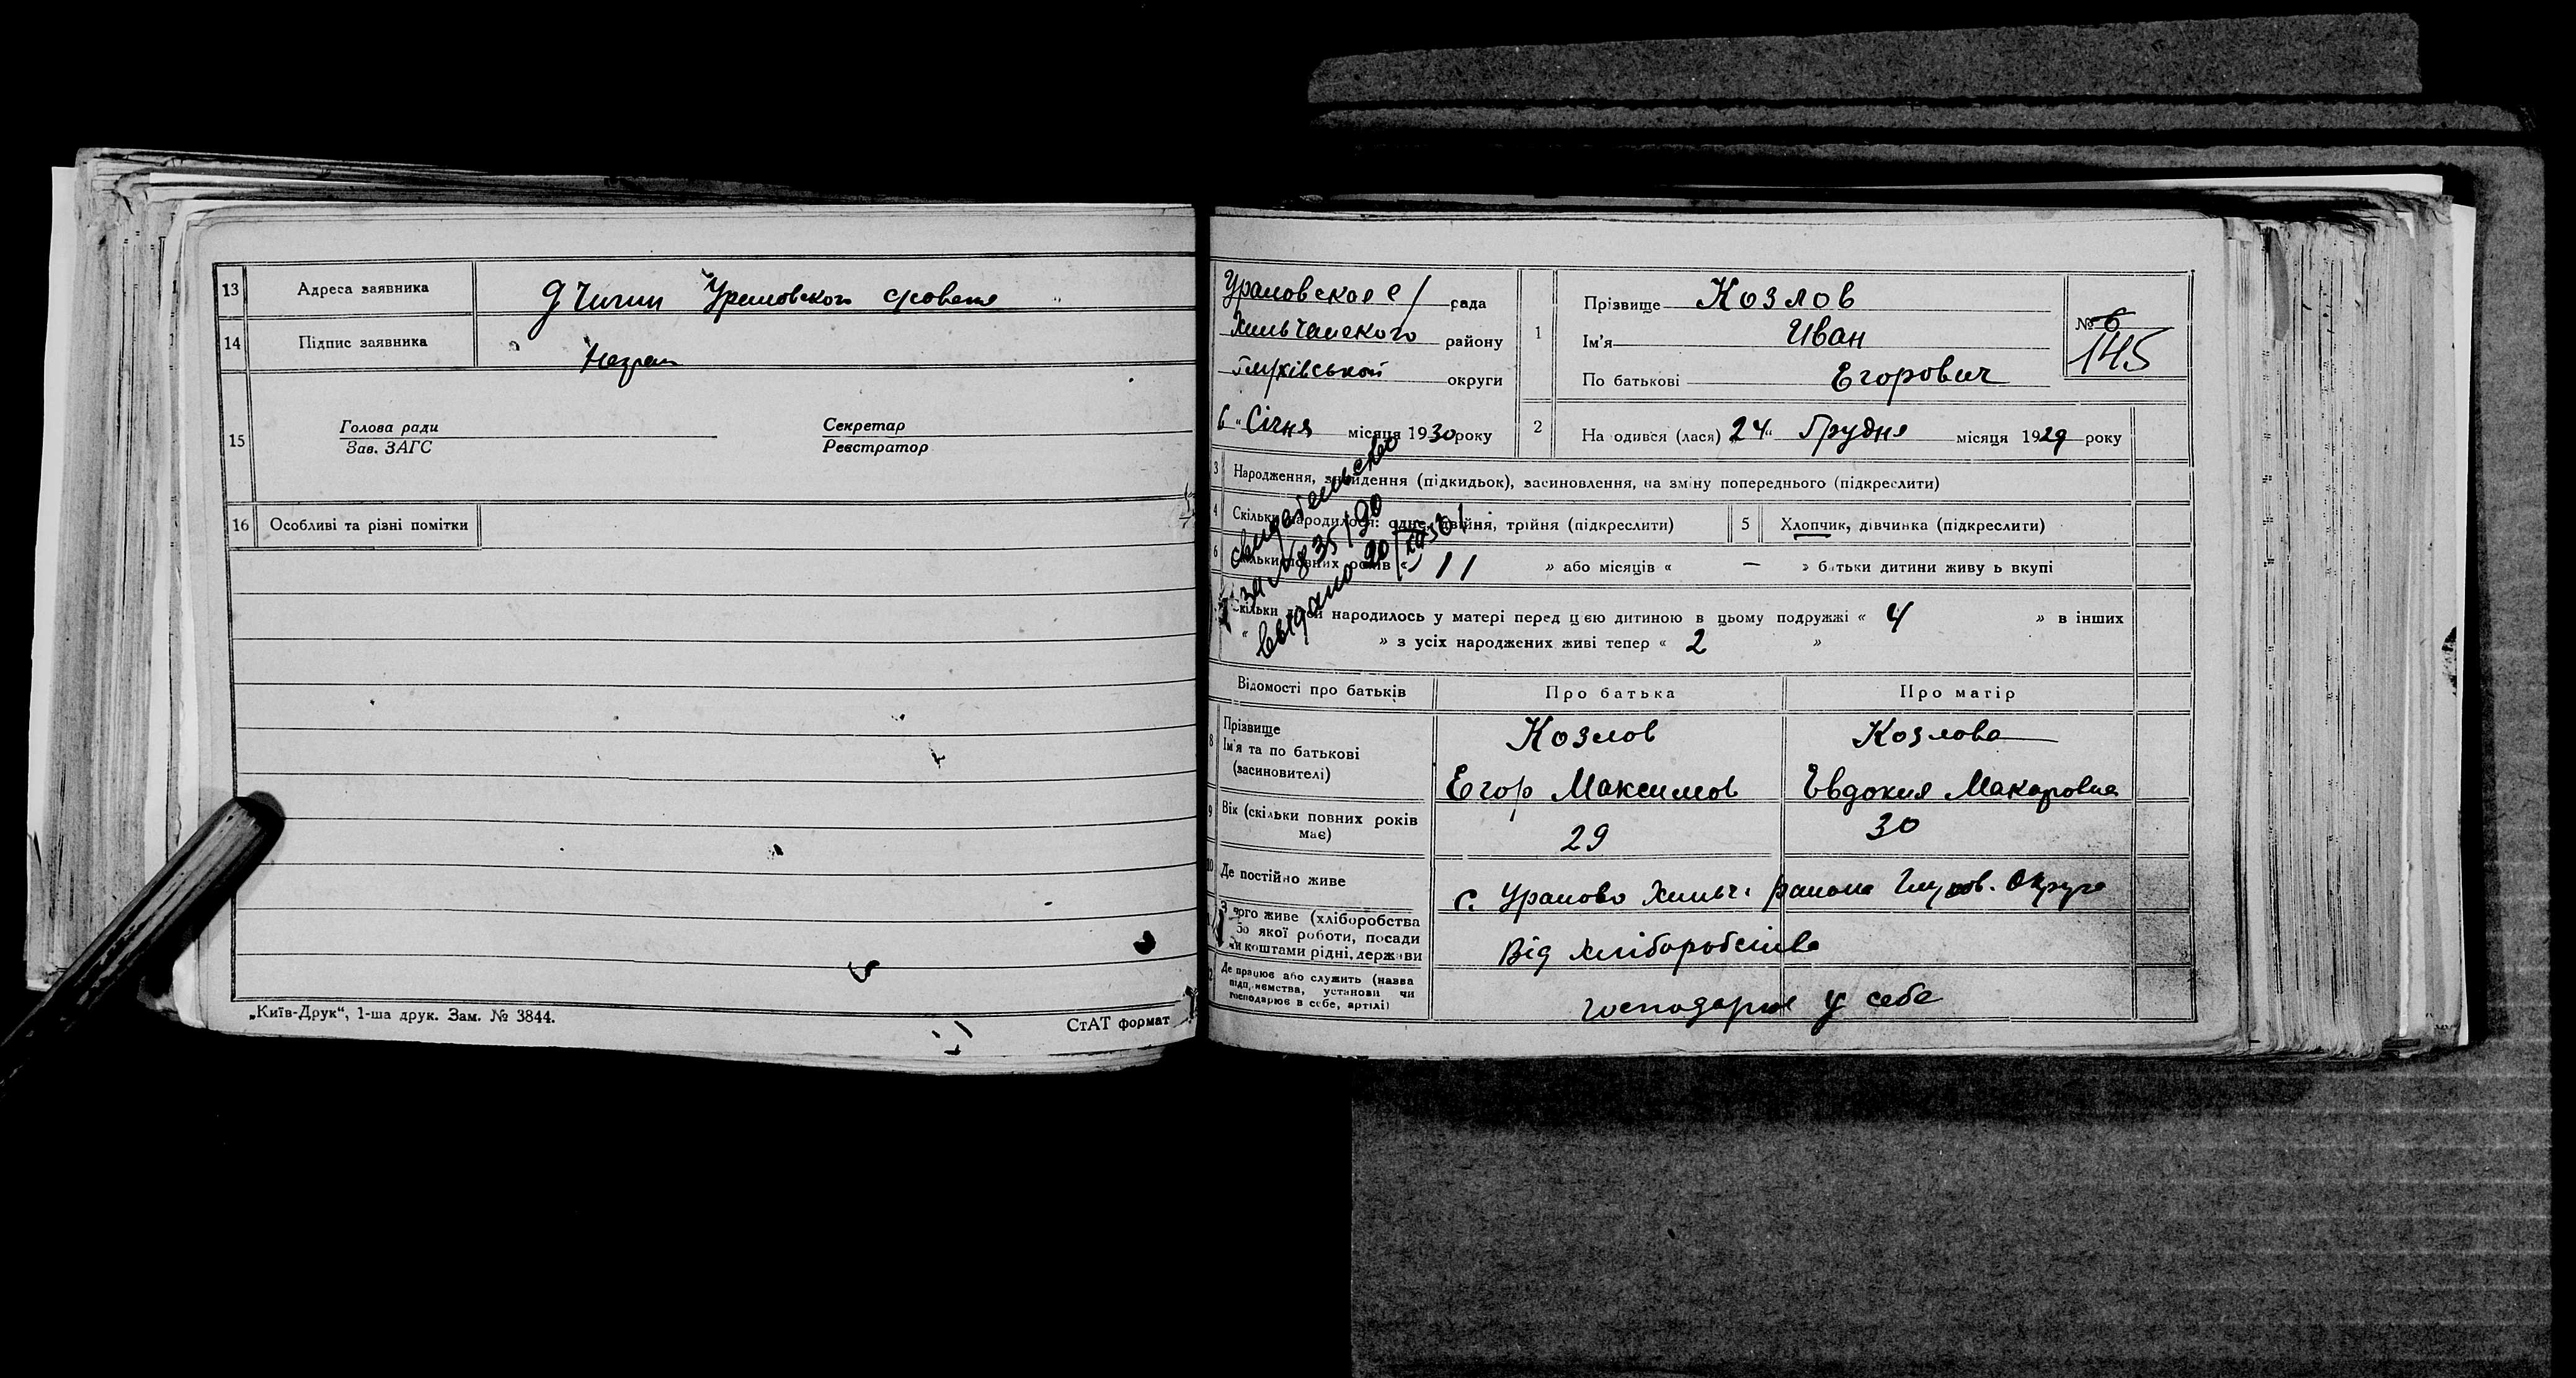 13 Адреса заявника Урановского с/совета
14 Підпис заявника Неграм
15 Голова ради Секретар
Зав. ЗАГС Реєстратор
16 Особливі та різні помітки
„Київ-Друк“, 1-ша друк. Зам. № 3844.
СтАТ формат
Урановская с/ рада
Хильчанского району
Глухівської округи
6 " Січня місяця 1930 року
1 Прізвище Козлов
Ім'я Иван
По батькові Егорович
№ 6
145
2 На одився (лася) 24 " Грудня місяця 1929 року
3 Народження, знайдення (підкидьок), засиновлення, на зміну попереднього (підкреслити)
4 Скільки народилося: одне, двійня, трійня (підкреслити) 5 Хлопчик, дівчинка (підкреслити)
6 Скільки повних років « 11 » або місяців « — » батьки дитини живу ь вкупі
Скільки дітей народилось у матері перед цією дитиною в цьому подружжі « 4 » в інших
« » з усіх народжених живі тепер « 2 »
свидетельство
за № 835/90
выдано 90
Відомості про батьків Про батька Про матір
8 Прізвище
Ім'я та по батькові
(засиновителі)
Козлов Козлова
Егор Максимов Евдокия Макаровна
9 Вік (скільки повних років має) 29 30
10 Де постійно живе с. Ураново Хильч. района Глухов. Округа
З чого живе (хліборобства
бо якої роботи, посади
чи коштами рідні, держави
Від хліборобства
Де працює або служить (назва
підприємства, установи чи
господарює в себе, артілі)
господарює у себе